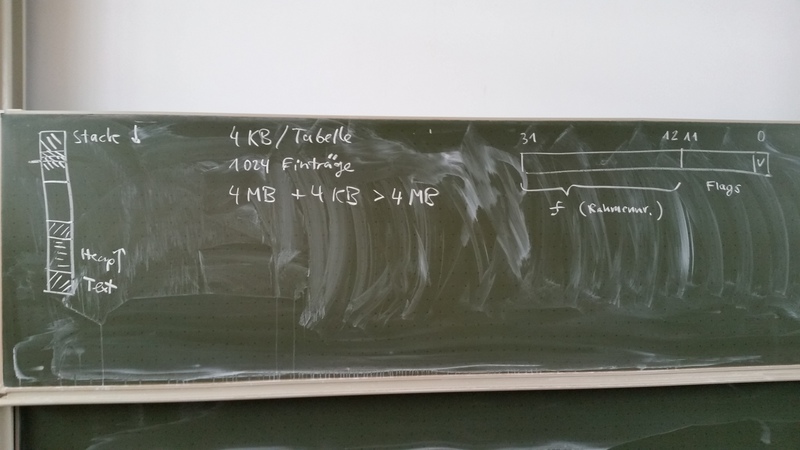 Stack ↓
Heap ↑
Text
4 KB / Tabelle
1024 Einträge
4 MB + 4 KB > 4 MB
31 12 11 0
v
f (Rahmennr.)
Flags